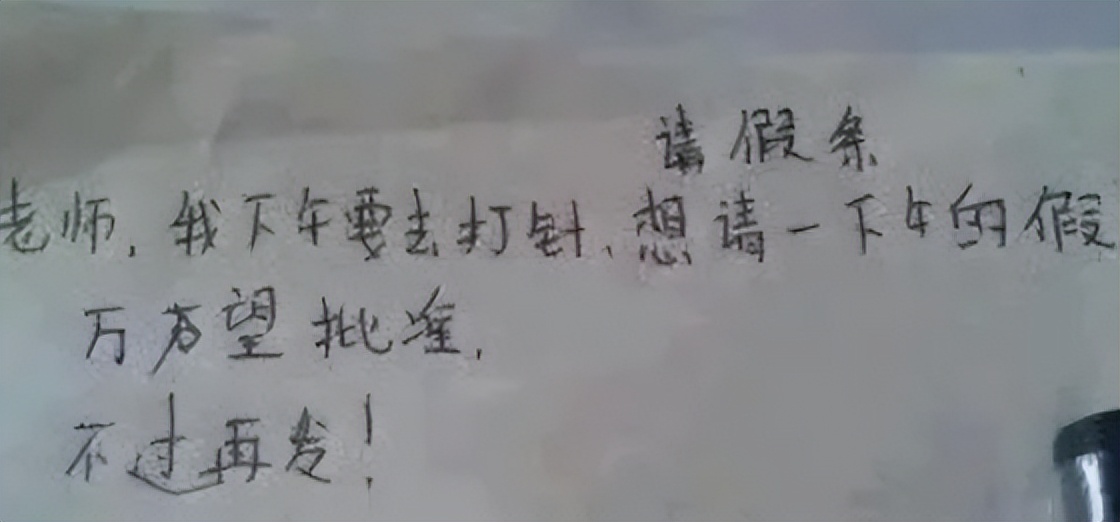 请假条
老师,我下午要去打针,想请一下午的假
万万望批准.
不过再发!